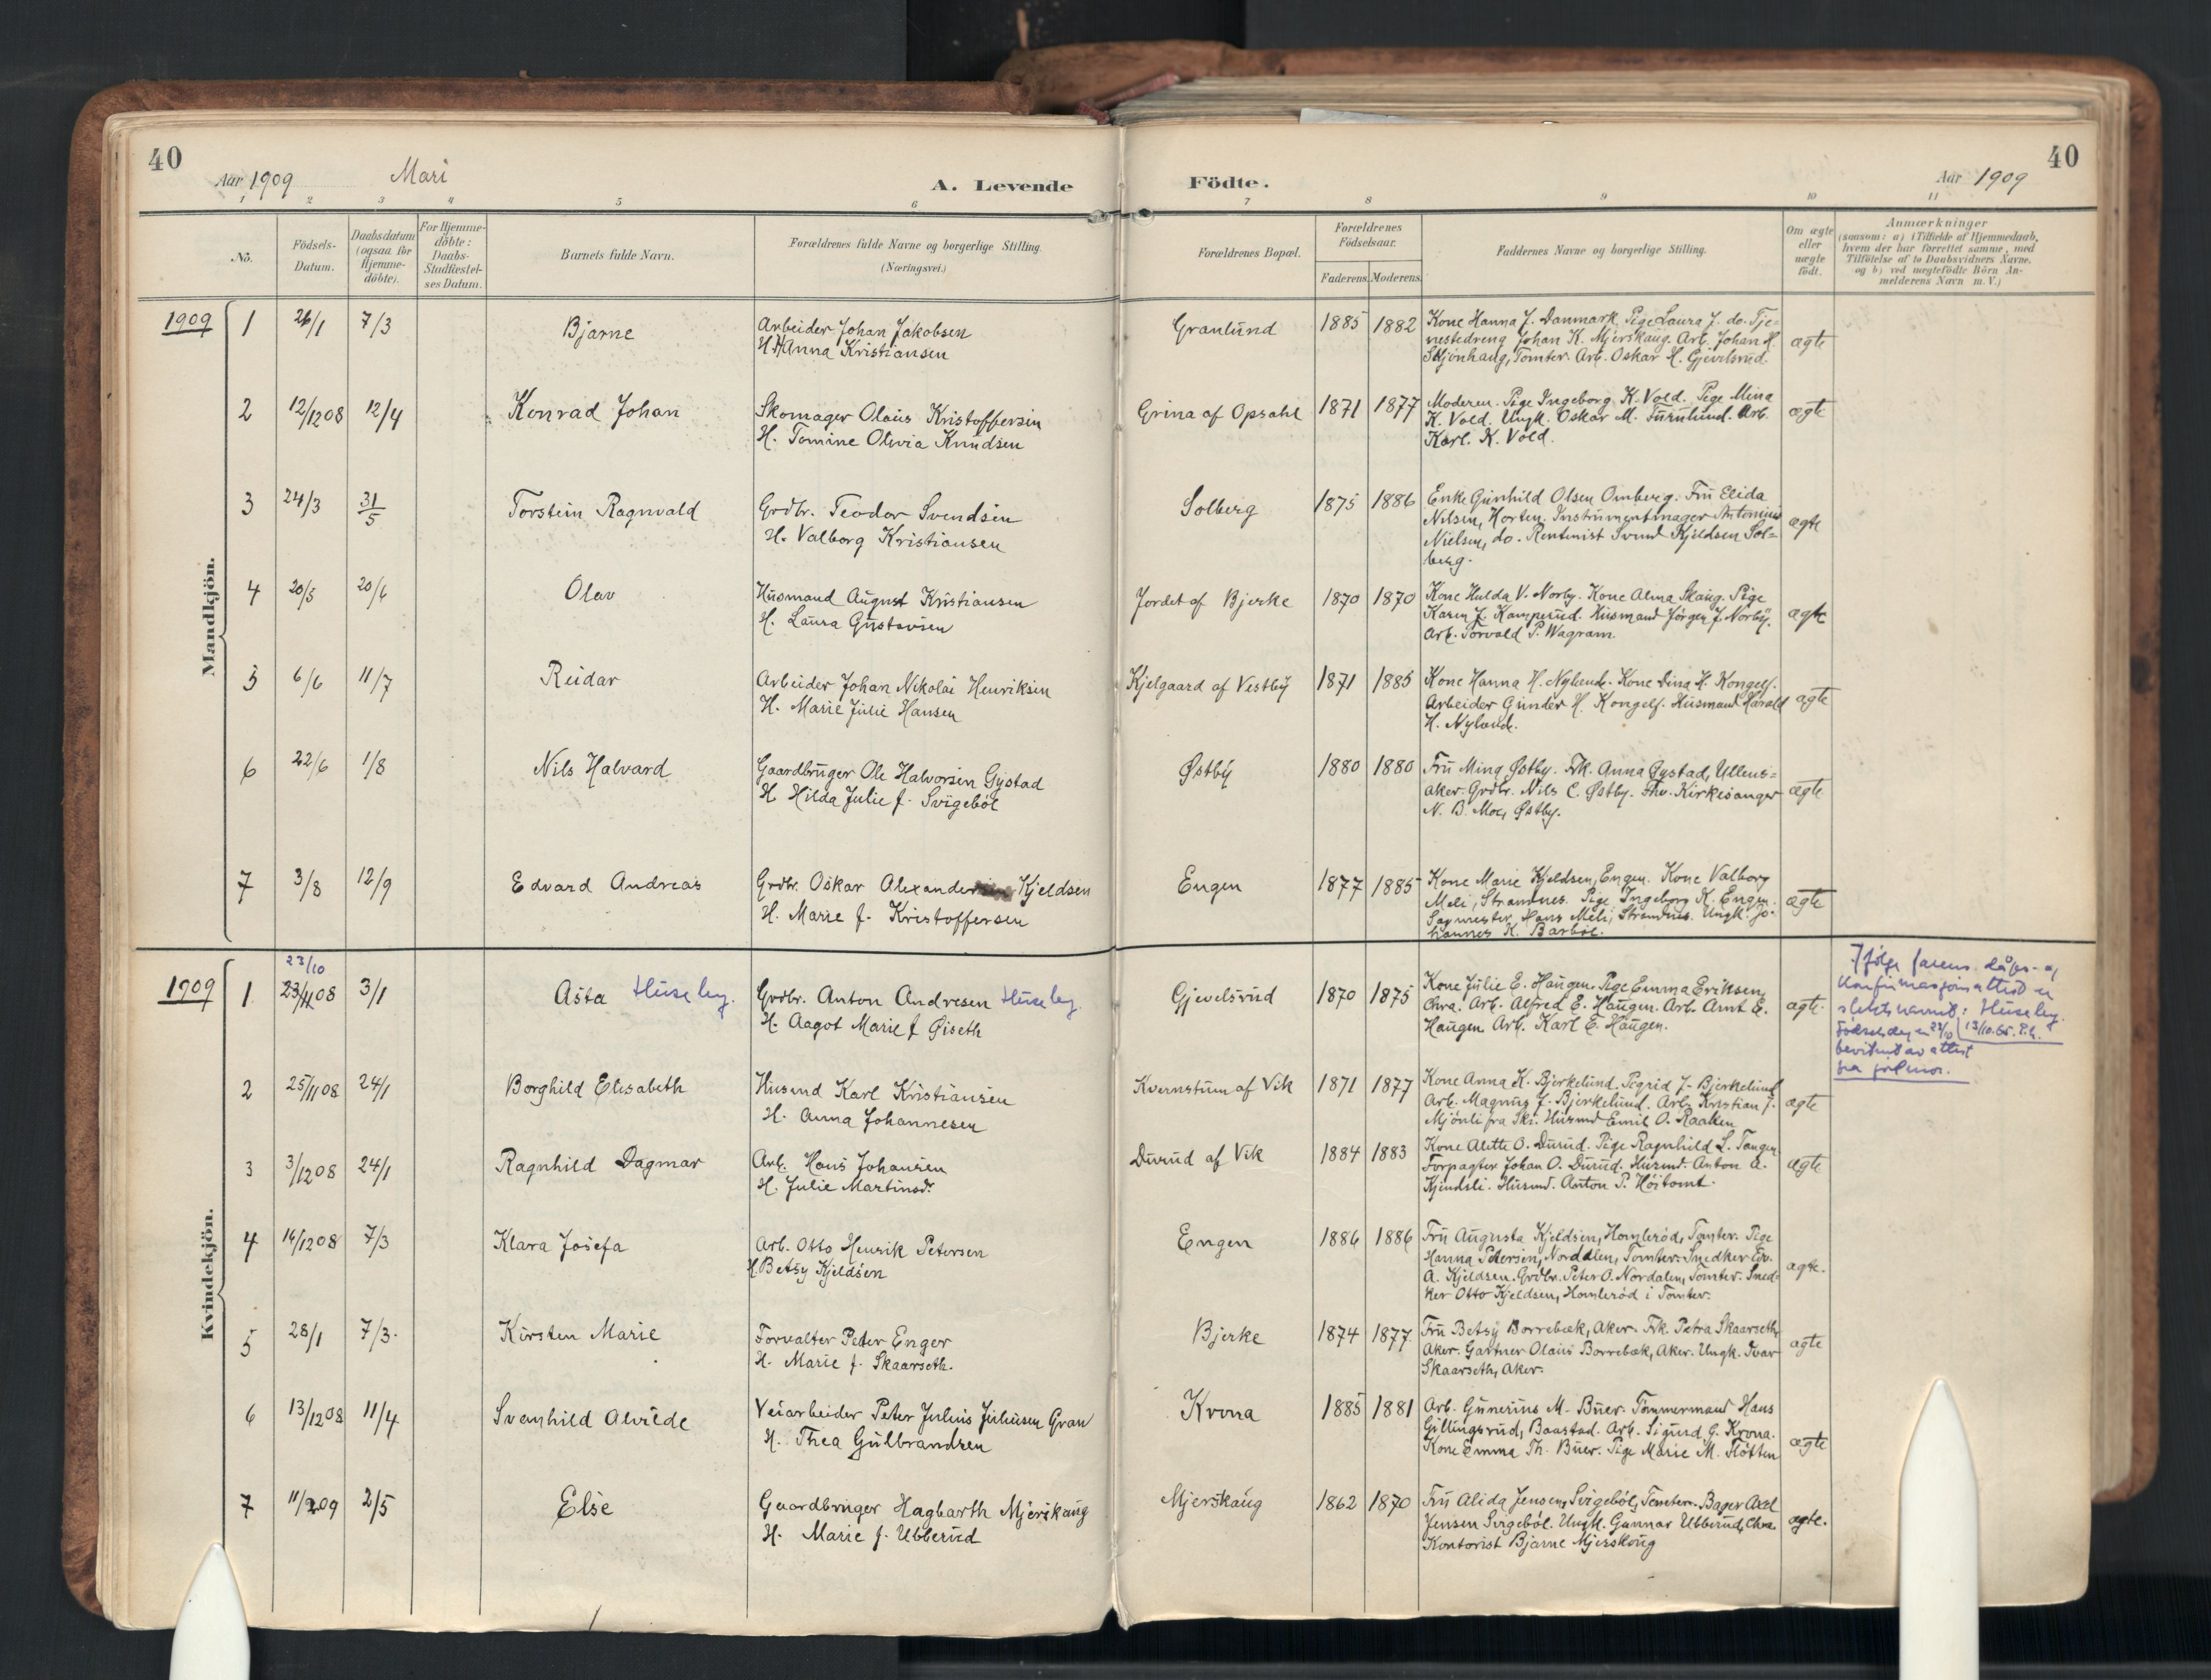 40
Aar 1909
Mari
A. Levende
Födte.
Aar 1909
40
1 2 3 4 5 6 7 8 9 10 11
No.
Födsels-
Datum.
Daabsdatum
(ogsaa for
Hjemme-
döbte).
For Hjemme-
döbte:
Daabs-
Stadfæstel-
ses Datum.
Barnets fulde Navn.
Forældrenes fulde Navne og borgerlige Stilling.
(Næringsvei.)
Forældrenes Bopæl.
Forældrenes
Födselsaar.
Faderens.
Moderens.
Faddernes Navne og borgerlige Stilling.
Om ægte
eller
uægte
födt.
Anmærkninger
(saasom: a) i Tilfælde af Hjemmedaab,
hvem der har forrettet samme, med
Tilföielse af to Daabsvidners Navne.
og b) ved uægtefödte Börn An-
melderens Navn m. V.)
Mandkjön.
1909 1 26/1 7/3 Bjarne
Arbeider Johan Jakobsen
H. Hanna Kristiansen
Granlund 1885 1882
Kone Hanna J. Danmark. Pige Laura J. do. Tje-
nestedreng Johan K. Mjerskaug. Arb. Johan H.
Skjönhaug, Tomter. Arb. Oskar H. Gjevelsrud.
ægte
2 12/12 08 12/4 Konrad Johan
Skomager Olaus Kristoffersen
H. Tomine Olivia Knudsen
Grina af Opsahl 1871 1877
Moderen. Pige Ingeborg K. Vold. Pige Mina
K. Vold. Ungk. Oskar M. Furulund. Arb.
Karl. K. Vold.
ægte
3 24/3 31/5 Torstein Ragnvald
Grdbr. Teodor Svendsen
H. Valborg Kristiansen
Solberg 1875 1886
Enke Gunhild Olsen Omberg. Fru Elida
Nilsen, Horten. Instrumentmager Antonius
Nielsen, do. Rentenist Svend Kjeldsen Sol-
berg.
ægte
4 20/5 20/6 Olav
Husmand August Kristiansen
H. Laura Gustavsen
Jordet af Bjerke 1870 1870
Kone Hulda V. Norby. Kone Alma Skaug. Pige
Karen J. Kamperud. Husmand Jörgen J. Norby.
Arb. Torvald P. Wagram
ægte
5 6/6 11/7 Reidar
Arbeider Johan Nikolai Henriksen
H. Marie Julie Hansen
Kjelgaard af Vestby 1871 1885
Kone Hanna H. Nylænd. Kone Dina H. Kongelf.
Arbeider Gunder H. Kongelf. Husmand Harald
H. Nylænd.
ægte
6 22/6 1/8 Nils Halvard
Gaardbruger Ole Halvorsen Gystad
H. Hilda Julie f. Svigeböl
Østby 1880 1880
Fru Mina Østby. Frk. Anna Gystad, Ullens-
aker. Grdbr. Nils C. Østby. Fhv. Kirkesanger
N. B. Moe, Østby.
ægte
7 3/8 12/9 Edvard Andreas
Grdbr. Oskar Alexander Kjeldsen
H. Marie f. Kristoffersen
Engen 1877 1885
Kone Marie Kjeldsen, Engen. Kone Valborg
Meli, Strømnes. Pige Ingeborg K. Engen.
Sagmester Hans Meli, Strømnes. Ungk. Jo-
hannes K. Barböl.
ægte
Kvindekjön.
1909 1 23/10
23/11 08 3/1 Asta Huseby.
Grdbr. Anton Andresen Huseby.
H. Aagot Marie f. Giseth
Gjevelsrud 1870 1875
Kone Julie E. Haugen. Pige Emma Eriksen,
Chra. Arb. Alfred E. Haugen. Arb. Arnt E.
Haugen Arb. Karl E. Haugen.
ægte.
Ifølge farens dåps- og
konfirmasjonsattest er
slektsnavnet: Huseby.
Fødselsdag er 23/10 13/10.65.
bevitnet av attest
fra
2 25/11 08 24/1 Borghild Elisabeth
Husmd Karl Kristiansen
H. Anna Johannesen
Kvernstum af Vik 1871 1877
Kone Anna K. Bjerkelund. Sigrid J. Bjerkelund
Arb. Magnus J. Bjerkelund. Arb. Kristian J.
Mjönli fra Ski. Husmd Emil O. Raaken
ægte
3 3/12 08 24/1 Ragnhild Dagmar
Arb. Hans Johansen
H. Julie Martinsdr.
Durud af Vik 1884 1883
Kone Alette O. Durud. Pige Ragnhild L. Tangen
Forpagter Johan O. Durud. Husmd. Anton A.
Kjindsli. Husmd. Anton P. Höitomt.
ægte
4 14/12 08 7/3 Klara Josefa
Arb. Otto Henrik Petersen
H. Betsy Kjeldsen
Engen 1886 1886
Fru Augusta Kjeldsen, Homleröd, Tomter. Pige
Hanna Petersen, Nordalen, Tomter. Snedker Edv.
A. Kjeldsen. Grdbr. Peter O. Nordalen, Tomter. Sned-
ker Otto Kjeldsen, Homleröd i Tomter.
ægte.
5 28/1 7/3. Kirsten Marie
Forvalter Peter Enger
H. Marie f. Skaarseth.
Bjerke 1874 1877.
Fru Betsy Borrebæk, Aker. Frk. Petra Skaarseth,
Aker. Gartner Olaus Borrebæk, Aker. Ungk. Ivar
Skaarseth, Aker.
ægte
6 13/12 08 11/4 Svanhild Alvilde
Veiarbeider Peter Julius Juliussen Gran
H. Thea Gulbrandsen
Krona 1885 1881
Arb. Gunerius M. Buer. Tømmermand Hans
Gillingsrud, Baastad. Arb. Sigurd G. Krona.
Kone Emma Th. Buer. Pige Marie M. Fløtten
ægte
7 11/2 09 2/5 Else
Gaardbruger Hagbarth Mjerskaug
H. Marie f. Ubberud
Mjerskaug 1862 1870
Fru Alida Jensen, Svigeböl, Tomter. Bager Axel
Jensen Svigeböl. Ungk. Gunnar Ubberud, Chra.
Kontorist Bjarne Mjerskaug
ægte.